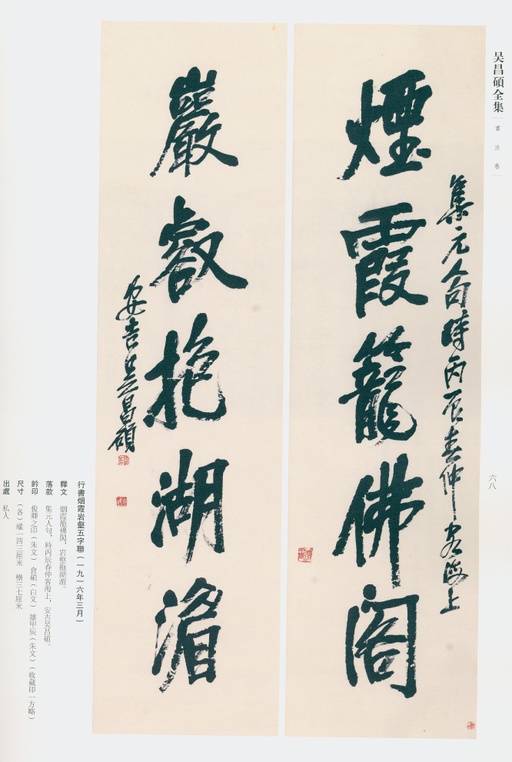 吴昌碩全集
書法卷
集元人句時丙辰春仲客海上
煙霞籠佛閣
六八
巖壑抱湖漘
安吉吳昌碩
行書烟霞岩壑五字聯(一九一六年三月)
釋文 烟霞籠佛閣,岩壑抱湖漘。
落款 集元人句,時丙辰春仲客海上,安吉吳昌碩。
鈐印 俊卿之印(朱文) 倉碩(白文) 雄甲辰(朱文)(收藏印一方略)
尺寸 (各)縱一四三厘米 橫三七厘米
出處 私人